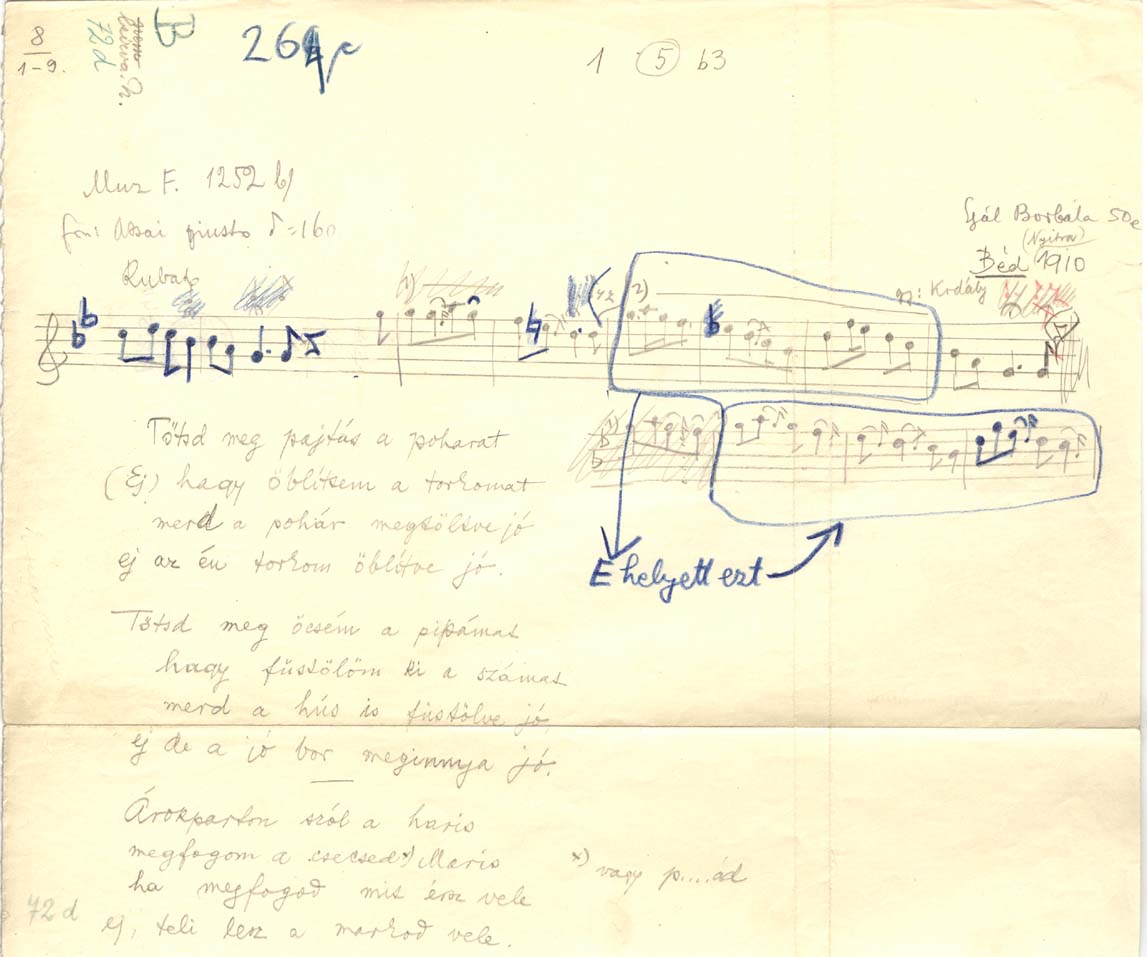 8
1-9.
beírva
72 d
B
1 5 b3
Muz F. 1252 b)
fon: Assai giusto ♪=160
Gál Borbála 50e
(Nyitra)
Béd 1910
Rubato
Krdály
1)
2)
Tötsd meg pajtás a poharat
(Ej) hagy öblítsem a torkomat
merd a pohár megtöltve jó
ej az én torkom öblítve jó.
E helyett ezt
Tötsd meg öcsém a pipámat
hagy füstölöm ki a számat
merd a hús is füstölve jó
ej de a jó bor meginnya jó.
Árokparton szól a haris
megfogom a csecsed x) Maris
ha megfogod mit érsz vele
ej, teli lesz a markod vele.
x) vagy p....ád
72 d